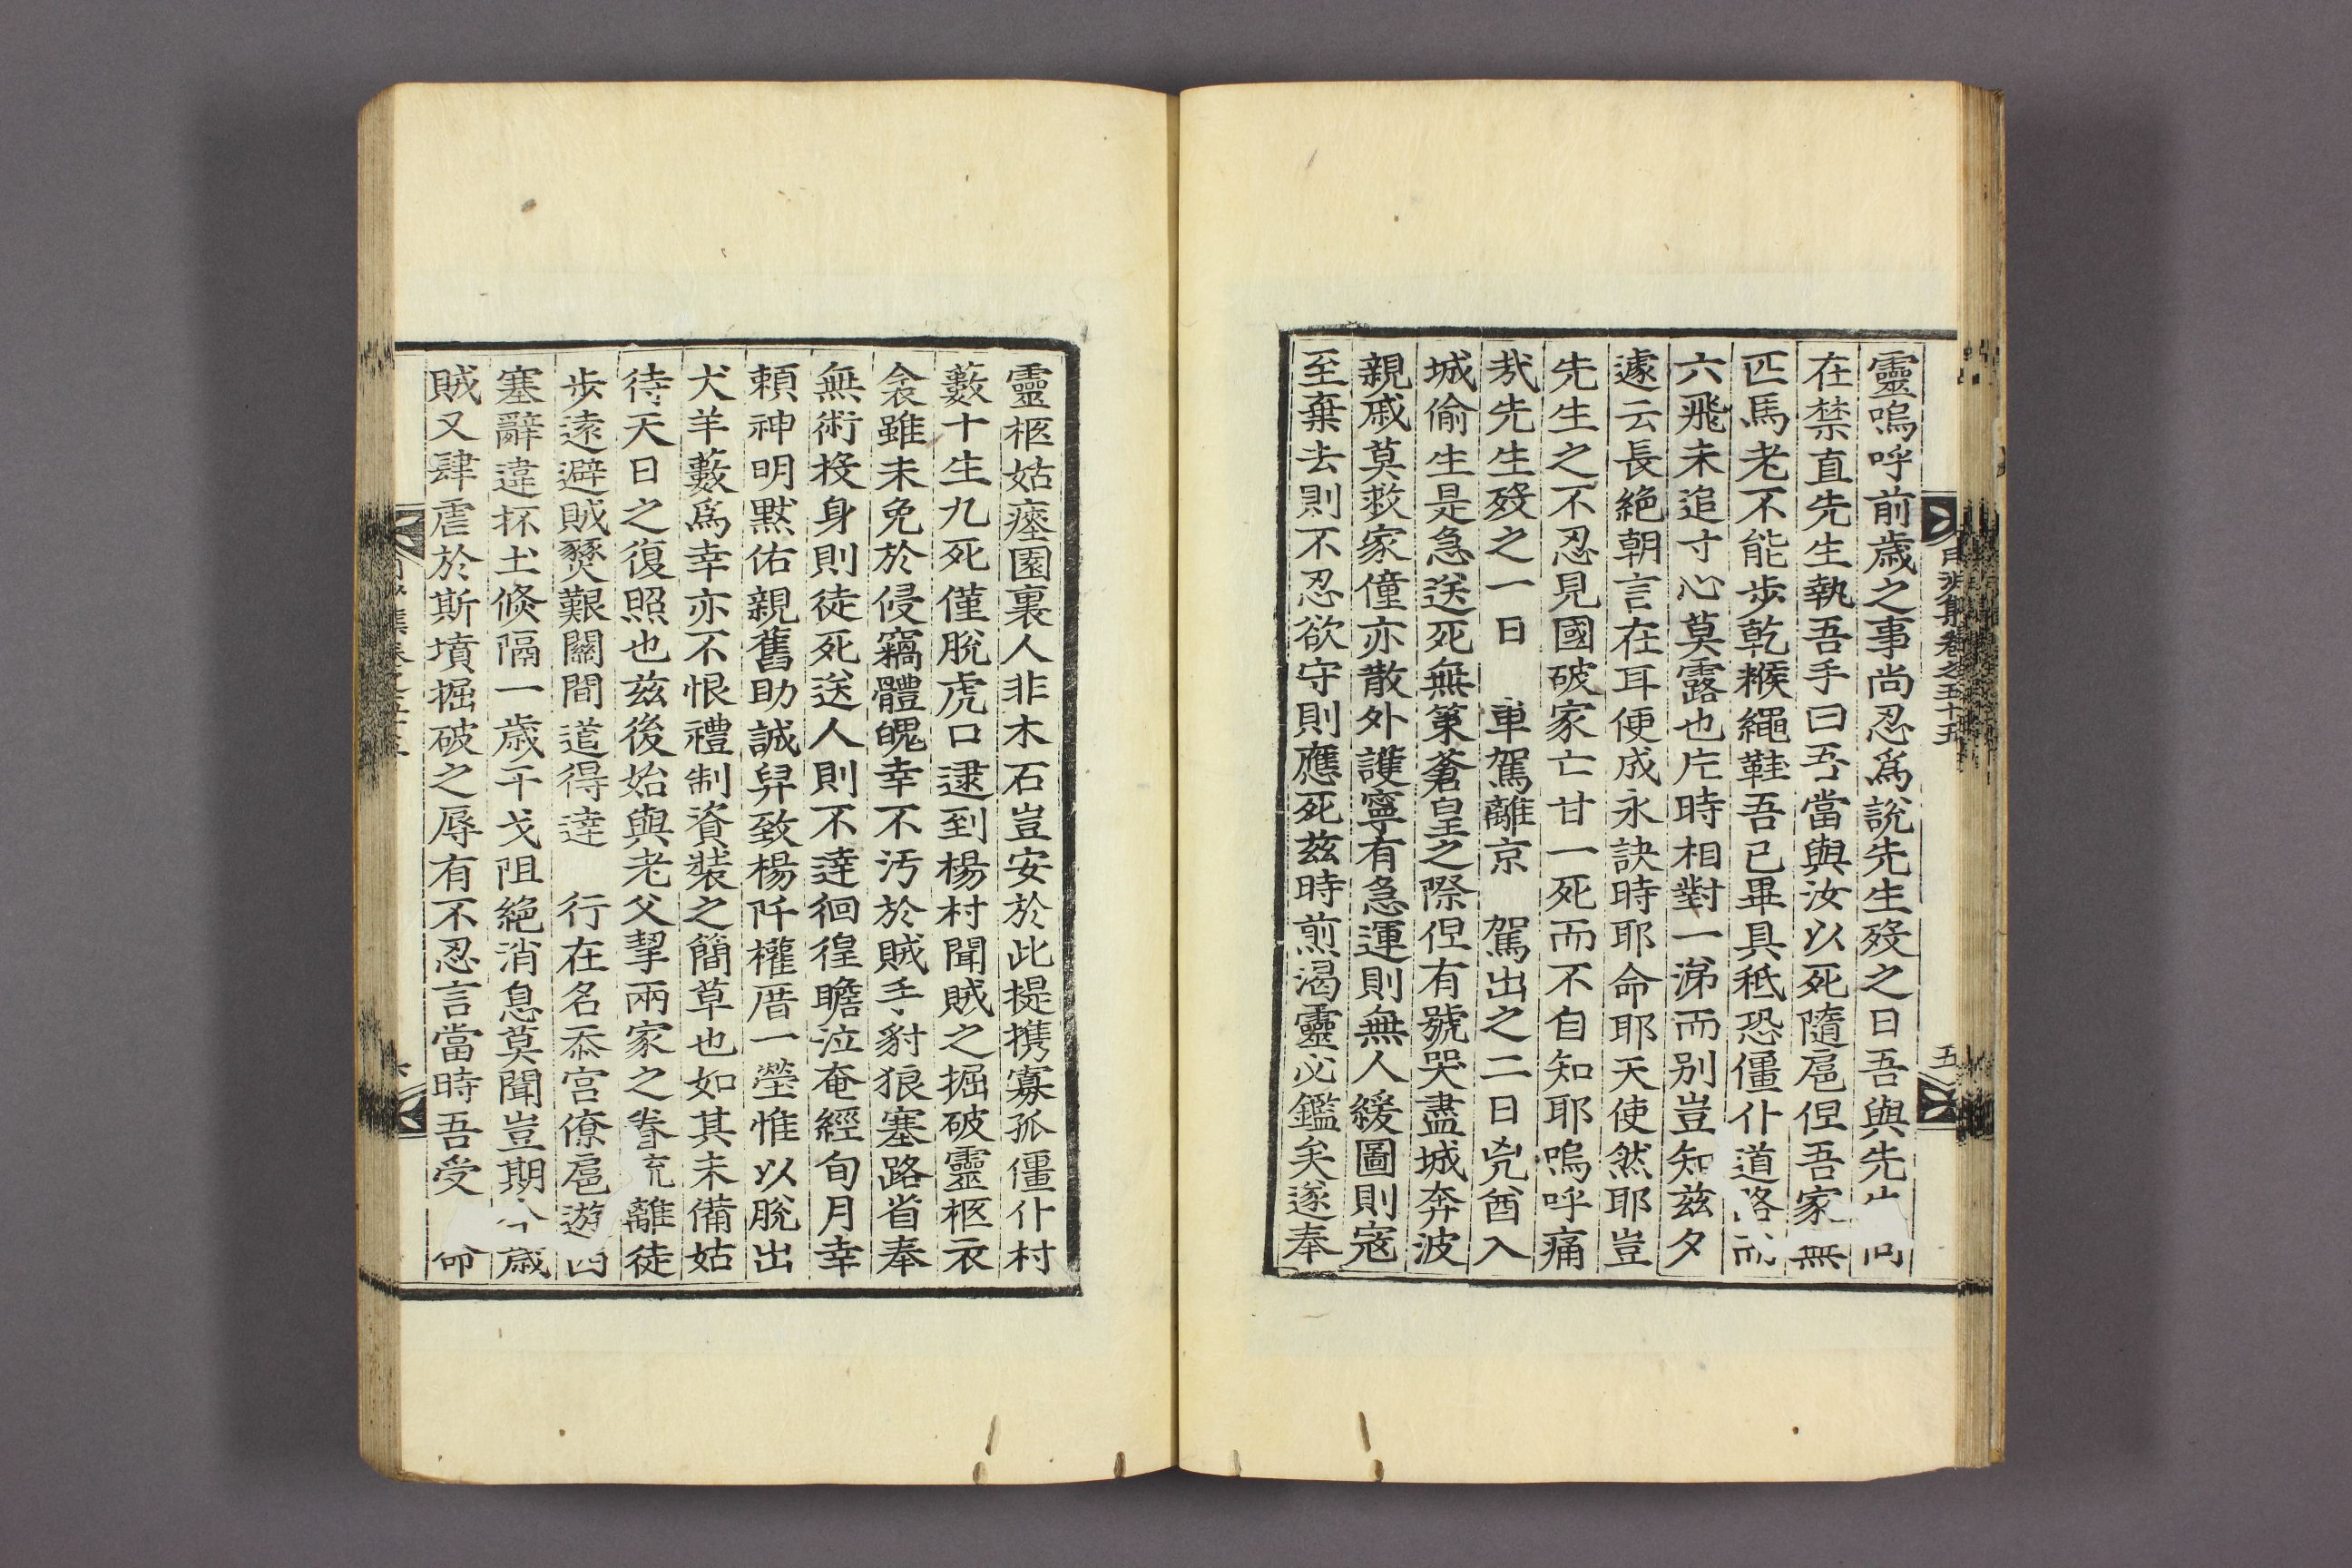 月沙集卷之五十五
五
靈嗚呼前歲之事尙忍爲說先生歿之日吾與先
在禁直先生執吾手曰吾當與汝以死隨扈但吾家無
匹馬老不能步乾糇繩鞋吾已畢具秪恐僵仆道路而
六飛未追寸心莫露也片時相對一涕而別豈知玆夕
遽云長絕朝言在耳便成永訣時耶命耶天使然耶豈
先生之不忍見國破家亡甘一死而不自知耶嗚呼痛
哉先生歿之一日 車駕離京 駕出之二日兇酋入
城偷生是急送死無策蒼皇之際但有號哭盡城奔波
親戚莫救家僮亦散外護寧有急運則無人緩圖則寇
至棄去則不忍欲守則應死玆時煎渴靈必鑑矣遂奉
靈柩姑瘞園裏人非木石豈安於此提携寡孤僵仆村
藪十生九死僅脫虎口逮到楊村聞賊之掘破靈柩衣
衾雖未免於侵竊體魄幸不汚於賊手豺狼塞路省奉
無術投身則徒死送人則不達徊徨瞻泣奄經旬月幸
賴神明默佑親舊助誠舁致楊阡權厝一塋惟以脫出
犬羊藪爲幸亦不恨禮制資裝之簡草也如其未備姑
待天日之復照也玆後始與老父挈兩家之眷流離徒
步遠避賊燹艱關間道得達 行在名忝宮僚扈遊西
塞辭違抔土倐隔一歲干戈阻絕消息莫聞豈期今歲
賊又肆虐於斯墳掘破之辱有不忍言當時吾受 命